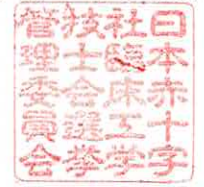 日本赤十字
社臨床工学
技士会選挙
管理委員会